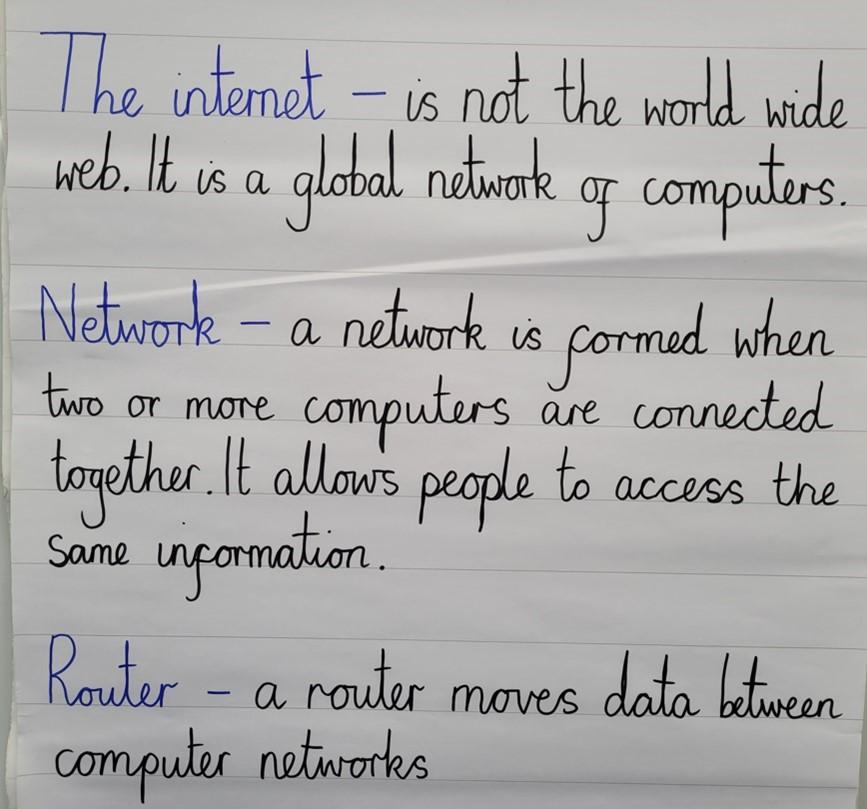 The internet – is not the world wide
web. It is a global network of computers.
Network – a network is formed when
two or more computers are connected
together. It allows people to access the
same information.
Router – a router moves data between
computer networks